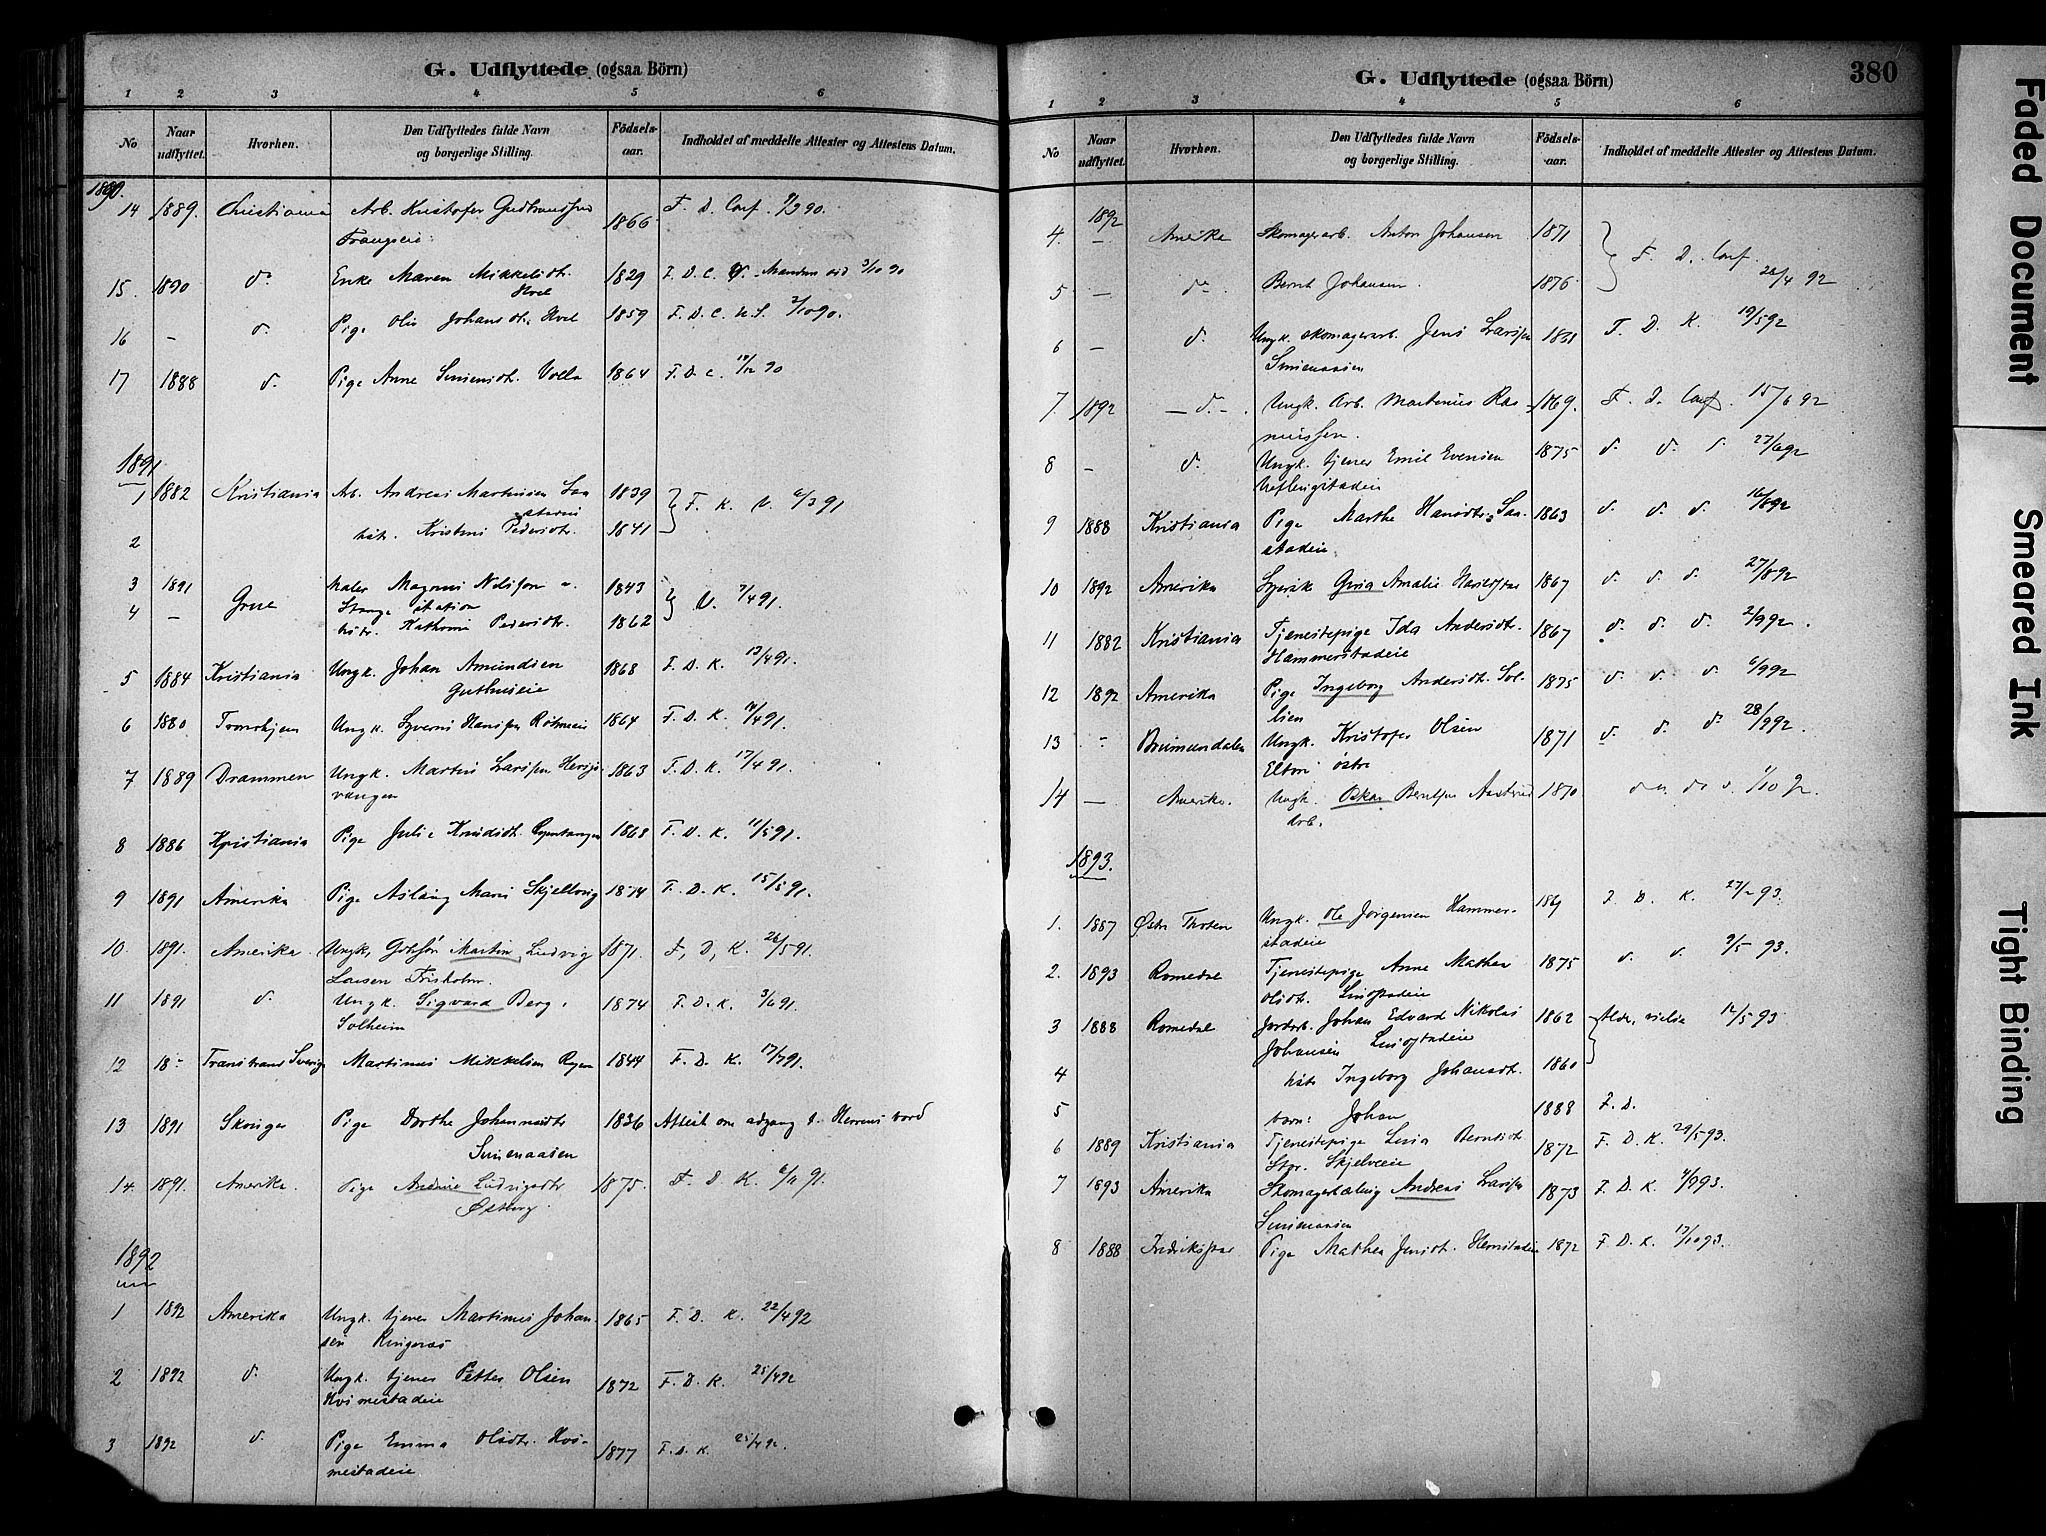 G. Udflyttede (ogsaa Börn)
1 2 3 4 5 6
No Naar udflyttet. Hvorhen. Den Udflyttedes fulde Navn og borgerlige Stilling. Födsels-aar. Indholdet af meddelte Attester og Attestens Datum.
1890.
14 1889. Christiania Arb. Kristofer 1866 F. D. Conf. 9/3 90.
15. 1890 do Enke Maren Mikkelsdtr. 1829 F. D. C. 3/10 90
Hvel
16 - d. Pige Olia Johansdtr. Hvel 1859 F. D. C. 2/10 90.
17 1888 d. Pige Anne Simensdtr. Volla 1864 F. D. C. 90
1891
1 1882 Kristiania Arb. Andreas Martinsen 1839 F. K. V. 6/3 91
2 hstr. Kristine Pedersdtr. 1841
3 1891 Maler Magnus Nilsson 1843
Stange station
4 - Grue hstr. Kathrine Pedersdtr. 1862 V. 7/4 91.
5 1884 Kristiania Ungk. Johan Amundsen 1868 F. D. K. 13/4 91.
6 1880 Ungk. Syvern Hansen 1864 F. D. K. 14/4 91.
7 1889 Drammen Ungk. Martin Larsen 1863 F. D. K. 17/4 91.
vangen
8 1886 Kristiania Pige Julie Knudsdtr. 1868 F. D. K. 11/5 91.
9 1891 Amerika Pige Aslaug Marie Skjelbreig 1874 F. D. K. 15/5 91.
10. 1891. Amerika Ungk. Martin Ludvig 1871. F, D, K. 26/5 91.
Larsen
11 1891 d. Ungk. Sigvard Berg, 1874 F. D. K. 3/6 91.
Solheim
12 18- Transtrand Sverige Martinus Mikkelsen 1844 F. D. K. 17/7 91.
13 1891 Pige Dorthe Johannesdtr 1836 Attest om adgang t. Herrens bord
Simenaasen
14. 1891. Amerika. Pige Andrine Ludvigsdtr 1875. F. D. K. 91.
Østberg.
1892
1 1892 Amerika Ungk. tjener Martinus Johan- 1865 F. D. K. 22/4 92
sen Ringeraas
2 1892 d. Ungk. tjener Petter Olsen 1872 F. D. K. 25/4 92
3 1892 d. Pige Emma Olsdtr. 1877 F. D. K. 25/4 92.
380
G. Udflyttede (ogsaa Börn)
1 2 3 4 5 6
No Naar udflyttet. Hvorhen. Den Udflyttedes fulde Navn og borgerlige Stilling. Födsels-aar. Indholdet af meddelte Attester og Attestens Datum.
1892
4 - Amerika Skomagerarb. Anton Johansen 1871 F. D. Conf.
5 - do Bernt Johansen. 1876 28/4 92
6 - d. Ungk. skomagerarb. Jens Larsen F. D. K. 19/5 92
Simenaasen
7. 1892 - d. - Ungk. Arb. Martinus Ras- 1869. F. D. Conf. 15/6 92
mussen.
8 - d. Ungk. tjener Emil Evensen 1875 d. d. d 27/6 92
9 1888 Kristiania Pige Marthe Hansdtr. Saa- 1863 d. d. d 16/8 92
stadeie
10 1892 Amerika Gina Amalie 1867 d. d. d. 27/8 92
11 1882 Kristiania Tjenestepige Ida Andersdtr. 1867 d. d. d 2/9 92.
Hammerstadeie
12 1892 Amerika Pige Ingeborg Andersdtr. Sol- 1875 d. d. d 6/9 92
lien
13 - Brumundalen Ungk. Kristofer Olsen 1871 d. d. do 28/9 92.
Elton østre
14 - Amerika. Ungk. Oskar Berntsen 1870 1/10 92.
Arb.
1893.
1. 1887 Østre Thoten Ungk. Ole Jörgensen Hammer- F. D. K. 93.
stadeie
2. 1893 Romedal Tjenestepige Anne Mathea 1875 d. d. 9/5 93.
Olsdtr.
3 1888 Romedal Jordarb. Johan Edvard Nikolai 1862 12/5 93.
Johansen
4 hstr Ingeborg Johansdtr. 1860
5 barn: Johan 1888 F. D.
6 1889 Kristiania Tjenestepige Lina Berntsdtr 1872 F. D. K. 29/5 93.
7 1893 Amerika Skomagerlærling Andreas Larsen 1873 F. D. K. 4/9 93.
Simenaasen
8 1888 Fredrikstad Pige Mathea Jensdtr. 1872 F. D. K. 17/10 93.
Faded Document
Smeared Ink
Tight Binding